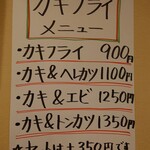 カキフライ
メニュー
・カキフライ 900円
・カキ&ヘレカツ1100円
・カキ&エビ 1250円
・カキ&トンカツ1350円
☆セットは+350円です